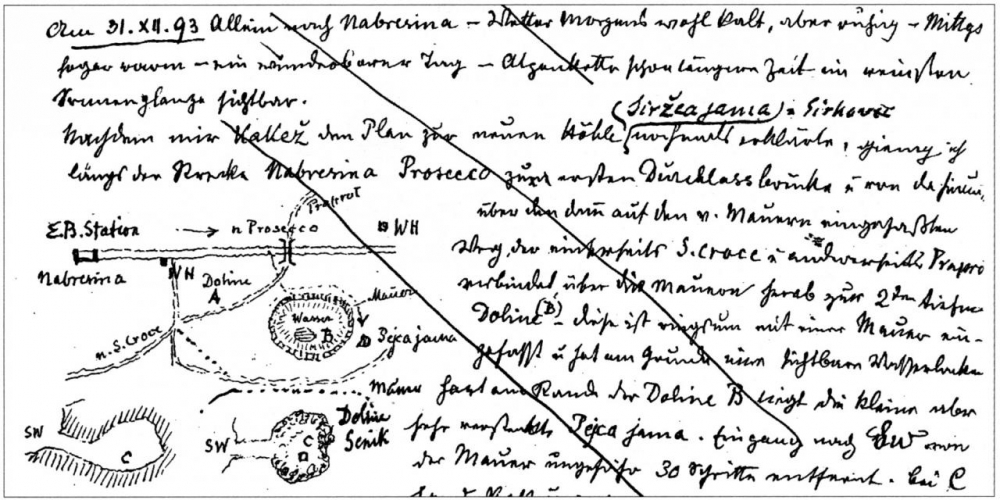 Am 31.XII.93 Allein nach Nabresina – Wetter Morgens wohl kalt, aber ruhig – Mittgs
sogar warm – ein wunderbarer Tag – Alpenkette schon längere Zeit im reinsten
Sonnenglanze sichtbar.
(Siržca jama) =
Nachdem mir den Plan zur neuen Höhle nochmals erklärte, gieng ich
längs der Strecke Nabresina Prosecco zur ersten Durchlassbrücke u von da
über den dann auf den v. Mauern eingefaßten
Weg, der einerseits S. Croce u andererseits
verbindet über die Mauern herab zur 2ten tiefen
Doline (B) – diese ist ringsum mit einer Mauer ein-
gefasst u hat am Grunde eine sichtbare Wasserlacke
hart am Rande der Doline B liegt die kleine aber
sehr versteckte Pejca jama. Eingang nach SW von
der Mauer ungefähr 30 Schritte entfernt. Bei C
E.B. Station → n Prosecco
WH
Nabresina
WH
Doline
A
Mauer
Wasser
B
Pejca jama
n. S. Croce
Mauer
Doline
Senik
SW
C
SW
C